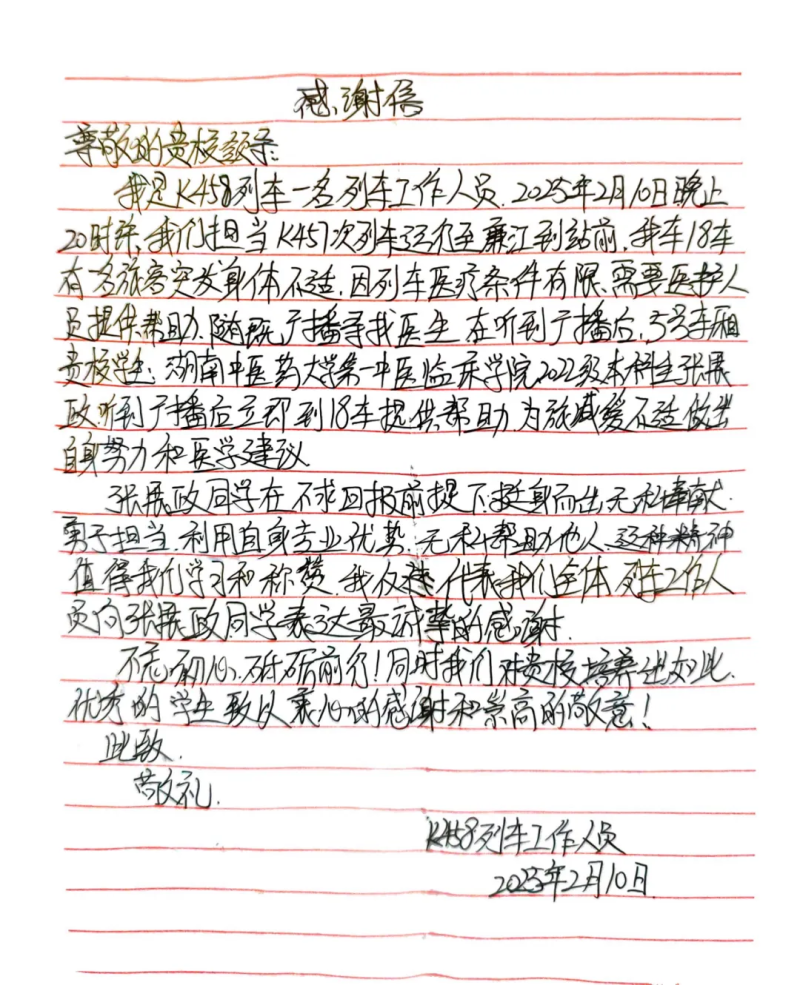 感谢信
尊敬的贵校领导:
我是K458列车一名列车工作人员.2025年2月10日晚上
20时许,我们担当K457次列车运行至廉江到站前,我车18车
有一名旅客突发身体不适.因列车医疗条件有限,需要医护人
员提供帮助.随既广播寻找医生.在听到广播后,5号车厢
贵校学生:湖南中医药大学第一中医临床学院2022级本科生张展
政听到广播后立即到18车提供帮助为旅减缓不适做出
自身努力和医学建议.
张展政同学在不求回报前提下.挺身而出.无私奉献.
勇于担当.利用自身专业优势.无私帮助他人.这种精神
值得我们学习和称赞.我仅 代表我们全体列车工作人
员向张展政同学表达最诚挚的感谢.
不忘初心.砥砺前行!同时我们对贵校培养出如此.
优秀的学生致以衷心的感谢和崇高的敬意!
此致.
敬礼.
K458列车工作人员
2025年2月10日.